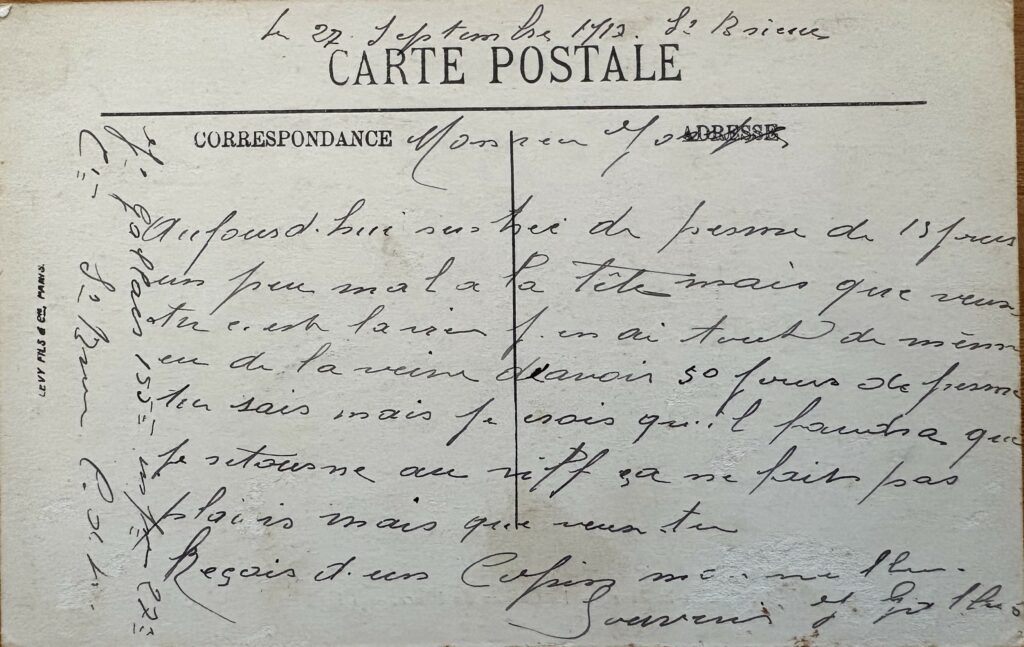 Le 27 Septembre 1917. St Brieuc
CARTE POSTALE
CORRESPONDANCE
ADRESSE
Monsieur
Aujourd.hui rentrée de perme de 13 jours
un peu mal a la tête mais que veux
tu c.est la vie j.en ai tout de même
eu de la veine d'avoir 50 jours de perme
tu sais mais je crois qu.il faudra que
je retourne au riff ça ne fait pas
plaisir mais que veux.tu
Reçois d.un Copin
Souvenir
155e infie 27e
Cie St Brieuc
LEVY FILS & Cie, PARIS.